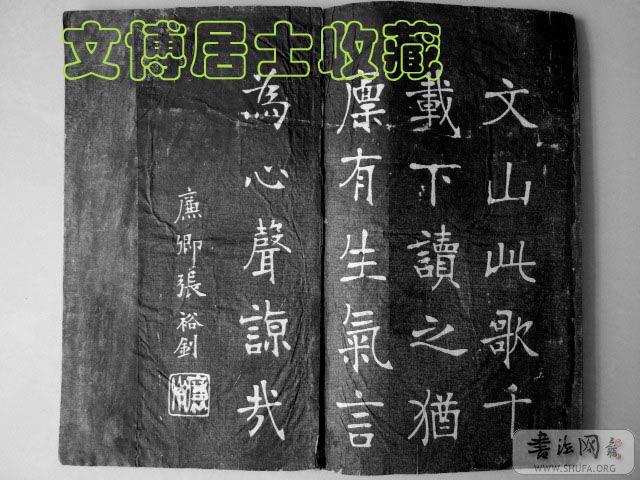 文博居士收藏
文山此歌千
載下讀之猶
凛有生氣言
為心聲諒哉
廉卿張裕釗
書法网
WWW.SHUFA.ORG